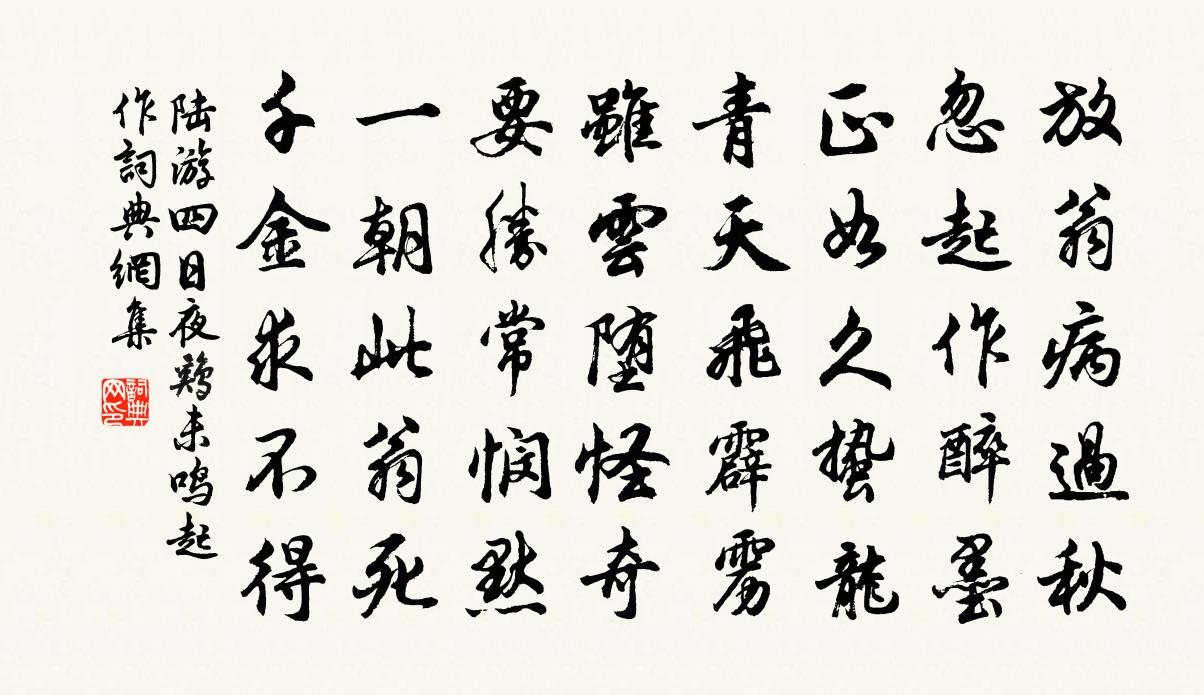 放翁病過秋
忽起作醉墨
正如久蟄龍
青天飛霹靂
雖雲堕怪奇
要勝常憫默
一朝此翁死
千金求不得
陆游四日夜鶏未鸣起
作詞典網集
詞典
网印